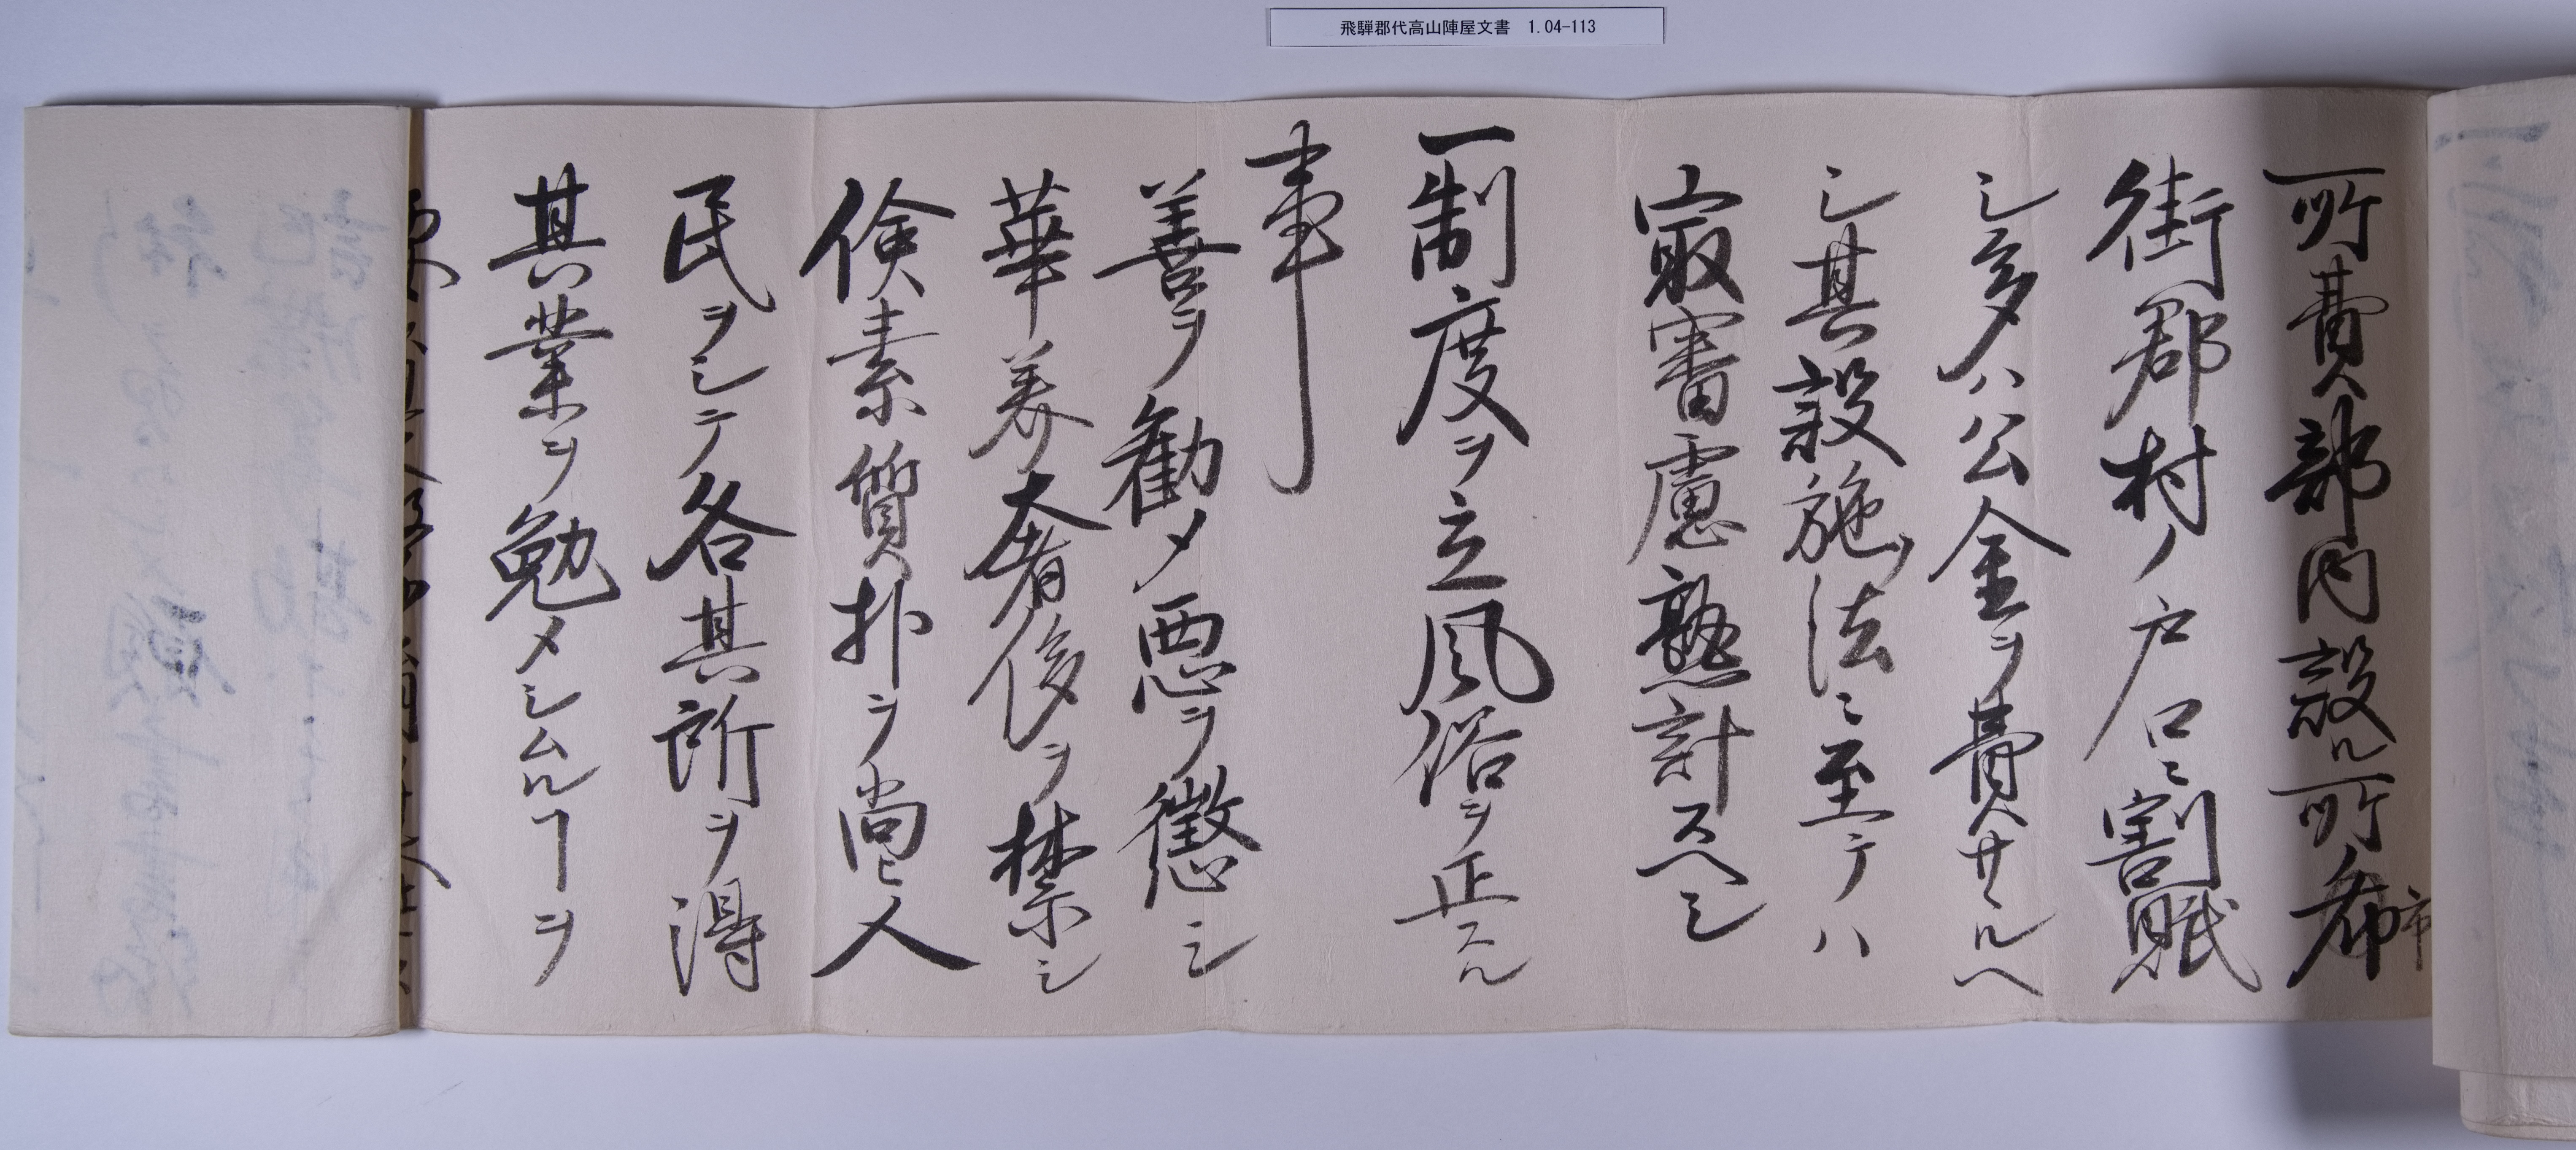 飛騨郡代高山陣屋文書 1.04-113
所費人部内設ル所希市
街郡村ノ戸口ニ割賦
シ多ハ公金ヲ費サヽルヘ
シ其設施ノ法ニ至テハ
最審慮熟計スヘシ
一制度ヲ立風俗ヲ正スル
事
善ヲ勧メ悪ヲ懲シ
華美奢侈ヲ禁シ
倹素質朴ヲ尚ヒ人
民ヲシテ各其所ヲ得
其業ヲ勉メシムルヿヲ